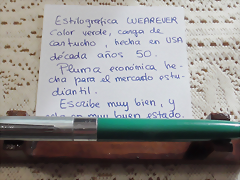 Estilografica WEAREVER
color verde, carga de
cartucho, hecha en USA
década años 50.
Pluma económica he-
cha para el mercado estu-
diantil.
Escribe muy bien, y
en muy buen estado.